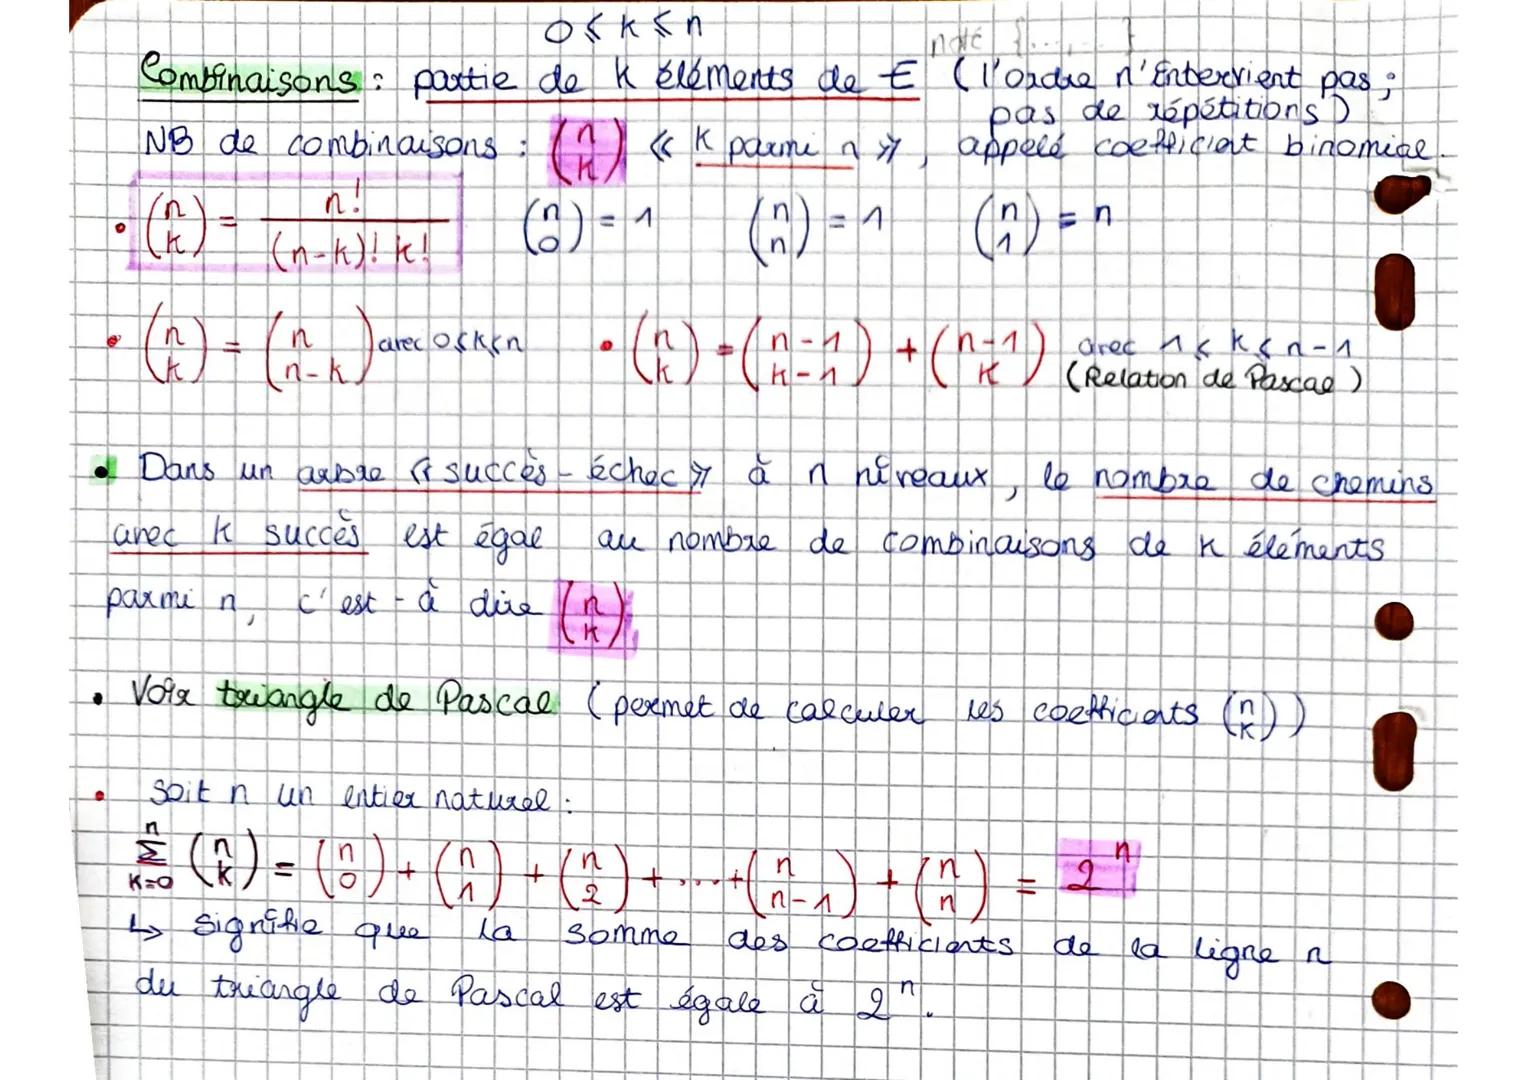 0 ⩽ k ⩽ n
noté {...,...}
Combinaisons : partie de k éléments de E (l'ordre n'intervient pas ;
pas de répétitions)
NB de combinaisons : (n k) « k parmi n », appelé coefficient binomial.
• (n k) = n! / (n-k)! k!   (n 0) = 1   (n n) = 1   (n 1) = n
• (n k) = (n n-k) avec 0⩽k⩽n   • (n k) = (n-1 k-1) + (n-1 k) avec 1 ⩽ k ⩽ n-1
(Relation de Pascal)
• Dans un arbre « succès - échec » à n niveaux, le nombre de chemins
avec k succès est égal au nombre de combinaisons de k éléments
parmi n, c'est-à dire (n k)
• Voir triangle de Pascal (permet de calculer les coefficients (n k))
• Soit n un entier naturel :
n Σ k=0 (n k) = (n 0) + (n 1) + (n 2) + ... + (n n-1) + (n n) = 2^n
↳ signifie que la somme des coefficients de la ligne n
du triangle de Pascal est égale à 2^n.